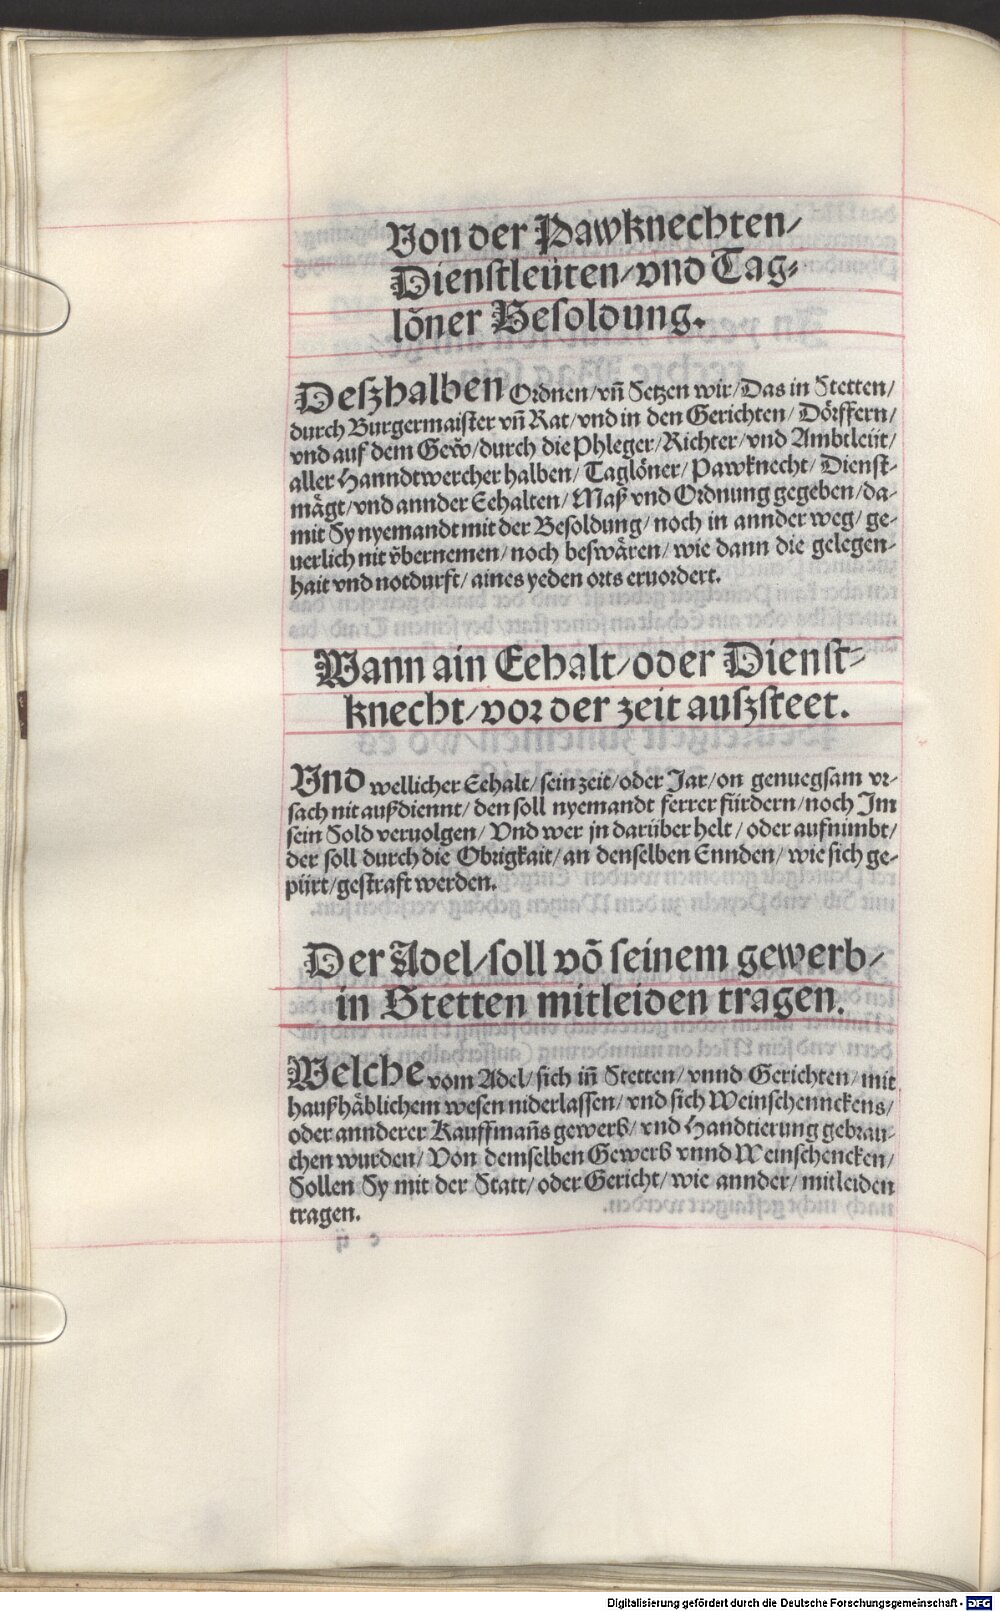 Von der Pawknechten/
Dienstleüten/vnd Tag-
löner Besoldung.
Deszhalben Ordnen/vñ Setzen wir/Das in Stetten/
durch Burgermaister vñ Rat/vnd in den Gerichten/Dörffern/
vnd auf dem Gew̃/durch die Phleger/Richter/vnd Ambtleüt/
aller Hanndtwercher halben/Taglöner/Pawknecht/Dienst-
mägt/vnd annder Eehalten/Maß vnd Ordnung gegeben/da-
mit Sy nyemandt mit der Besoldung/noch in annder weg/ge-
uerlich nit v̈bernemen/noch beswären/wie dann die gelegen-
hait vnd notdurft/aines yeden orts eruordert.
Wann ain Eehalt/oder Dienst-
knecht/vor der zeit auszsteet.
Vnd wellicher Eehalt/sein zeit/oder Jar/on genuegsam vr-
sach nit außdiennt/den soll nyemandt ferrer fürdern/noch Im
sein Sold veruolgen/Vnd wer jn darüber helt/oder aufnimbt/
der soll durch die Obrigkait/an denselben Ennden/wie sich ge-
pürt/gestraft werden.
Der Adel/soll võ seinem gewerb/
in Stetten mitleiden tragen.
Welche vom Adel/sich iñ Stetten/vnnd Gerichten/mit
haußhäblichem wesen niderlassen/vnd sich Weinschennckens/
oder annderer Kauffmañs gewerb/vnd Handtierung gebrau-
chen wurden/Von demselben Gewerb vnnd Weinschencken/
Sollen Sy mit der Statt/oder Gericht/wie annder/mitleiden
tragen.
Digitalisierung gefördert durch die Deutsche Forschungsgemeinschaft - DFG